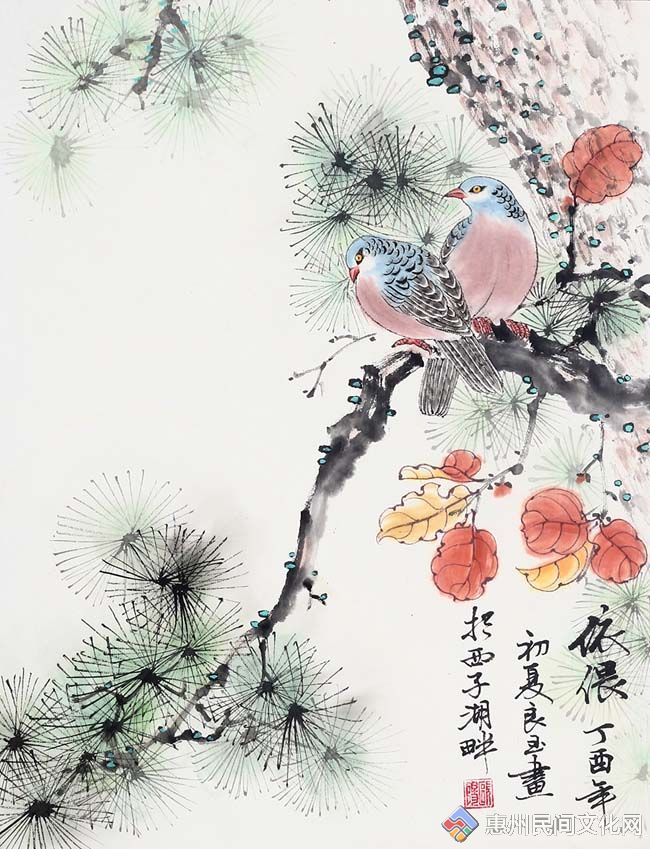 依偎 丁酉年
初夏良玉畫
於西子湖畔
惠州民间文化网